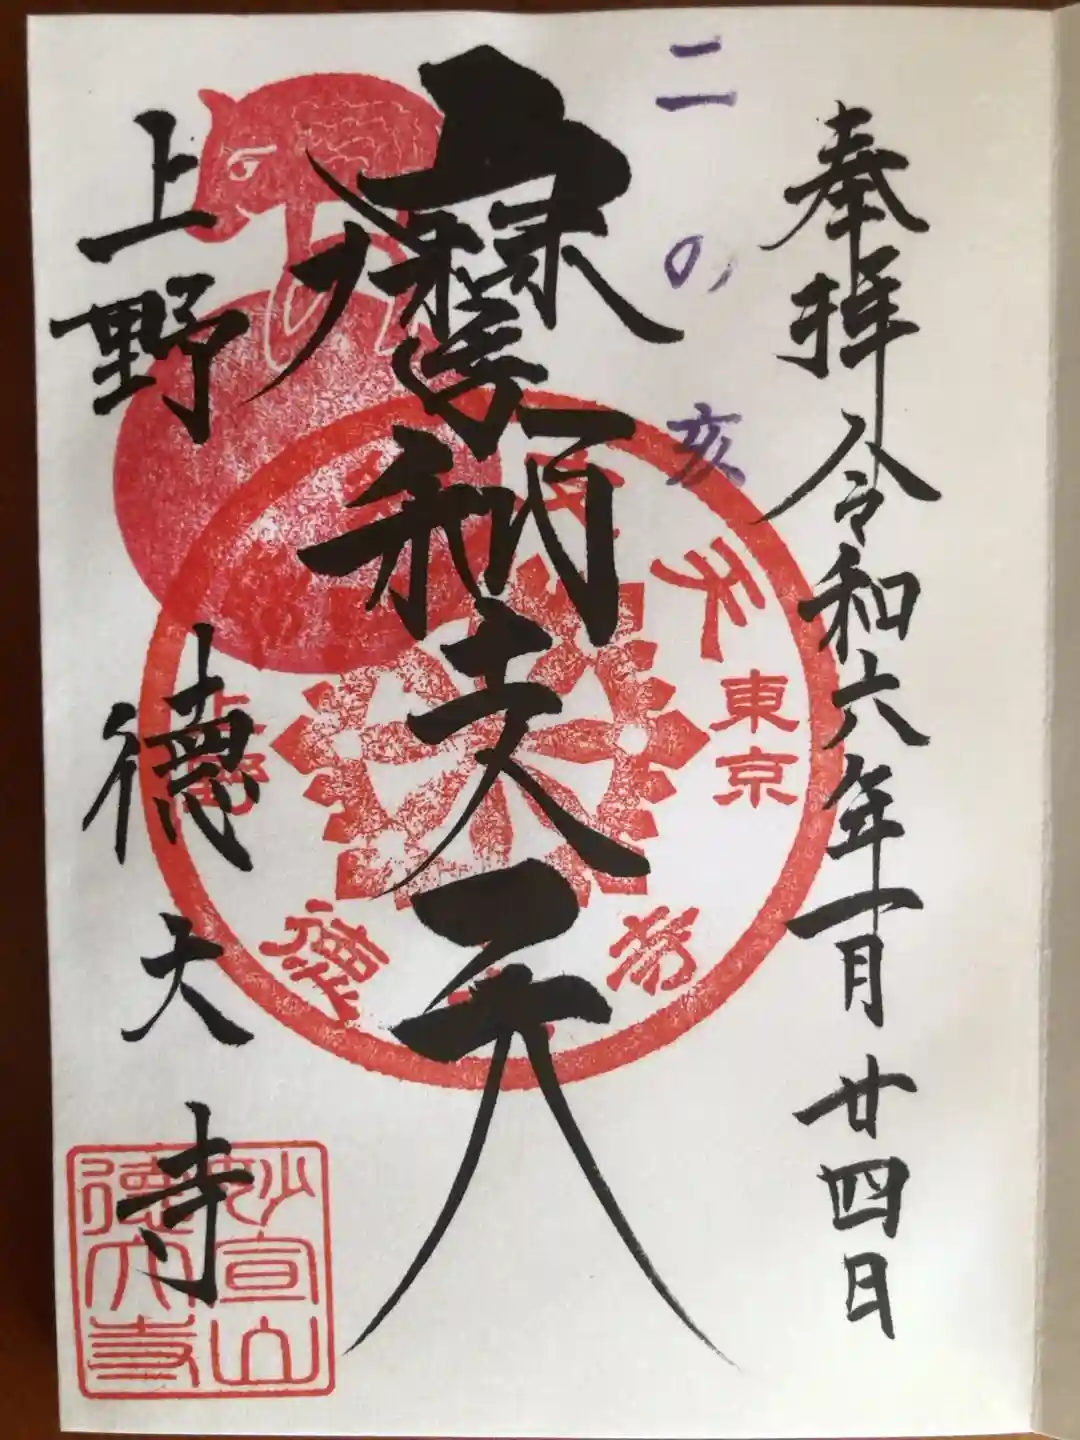 奉拝 令和六年一月廿四日
二の亥
支天
上野 徳大寺
天
東京
上野
徳
妙宣山
徳大寺